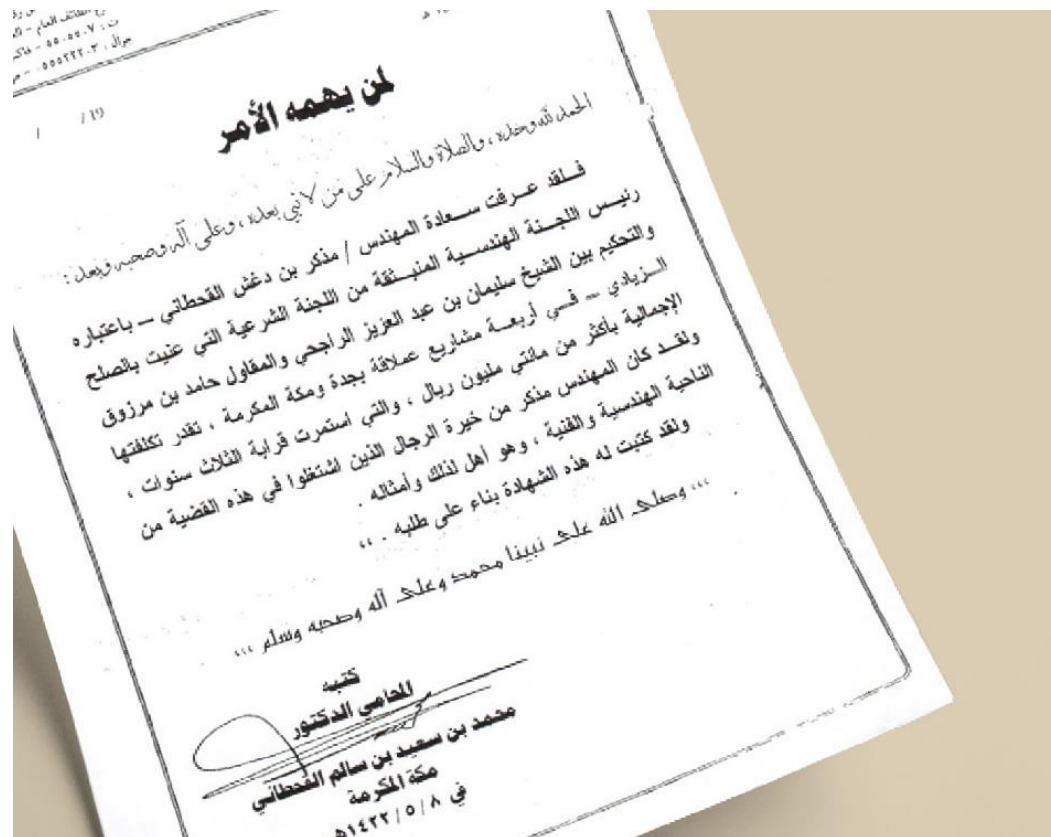 ت : ٥٥٠٥٥٠٧ – فاكس
جوال : ٠٥٥٥٢٢٢٠٣
/ / ١٩
لمن يهمه الأمر
الحمد لله وحده ، والصلاة والسلام على من لا نبي بعده ، وعلى آله وصحبه وبعد :
فلقد عرفت سعادة المهندس / مذكر بن دغش القحطاني – باعتباره
رئيس اللجنة الهندسية المنبثقة من اللجنة الشرعية التي عنيت بالصلح
والتحكيم بين الشيخ سليمان بن عبد العزيز الراجحي والمقاول حامد بن مرزوق
الزيادي – في أربعة مشاريع عملاقة بجدة ومكة المكرمة ، تقدر تكلفتها
الإجمالية بأكثر من مائتي مليون ريال ، والتي استمرت قرابة الثلاث سنوات ،
ولقد كان المهندس مذكر من خيرة الرجال الذين اشتغلوا في هذه القضية من
الناحية الهندسية والفنية ، وهو أهل لذلك وأمثاله .
ولقد كتبت له هذه الشهادة بناء على طلبه . ،،
،،، وصلى الله على نبينا محمد وعلى آله وصحبه وسلم ،،،
كتبه
المحامي الدكتور
محمد بن سعيد بن سالم القحطاني
مكة المكرمة
في ١٤٢٢/٥/٨هـ